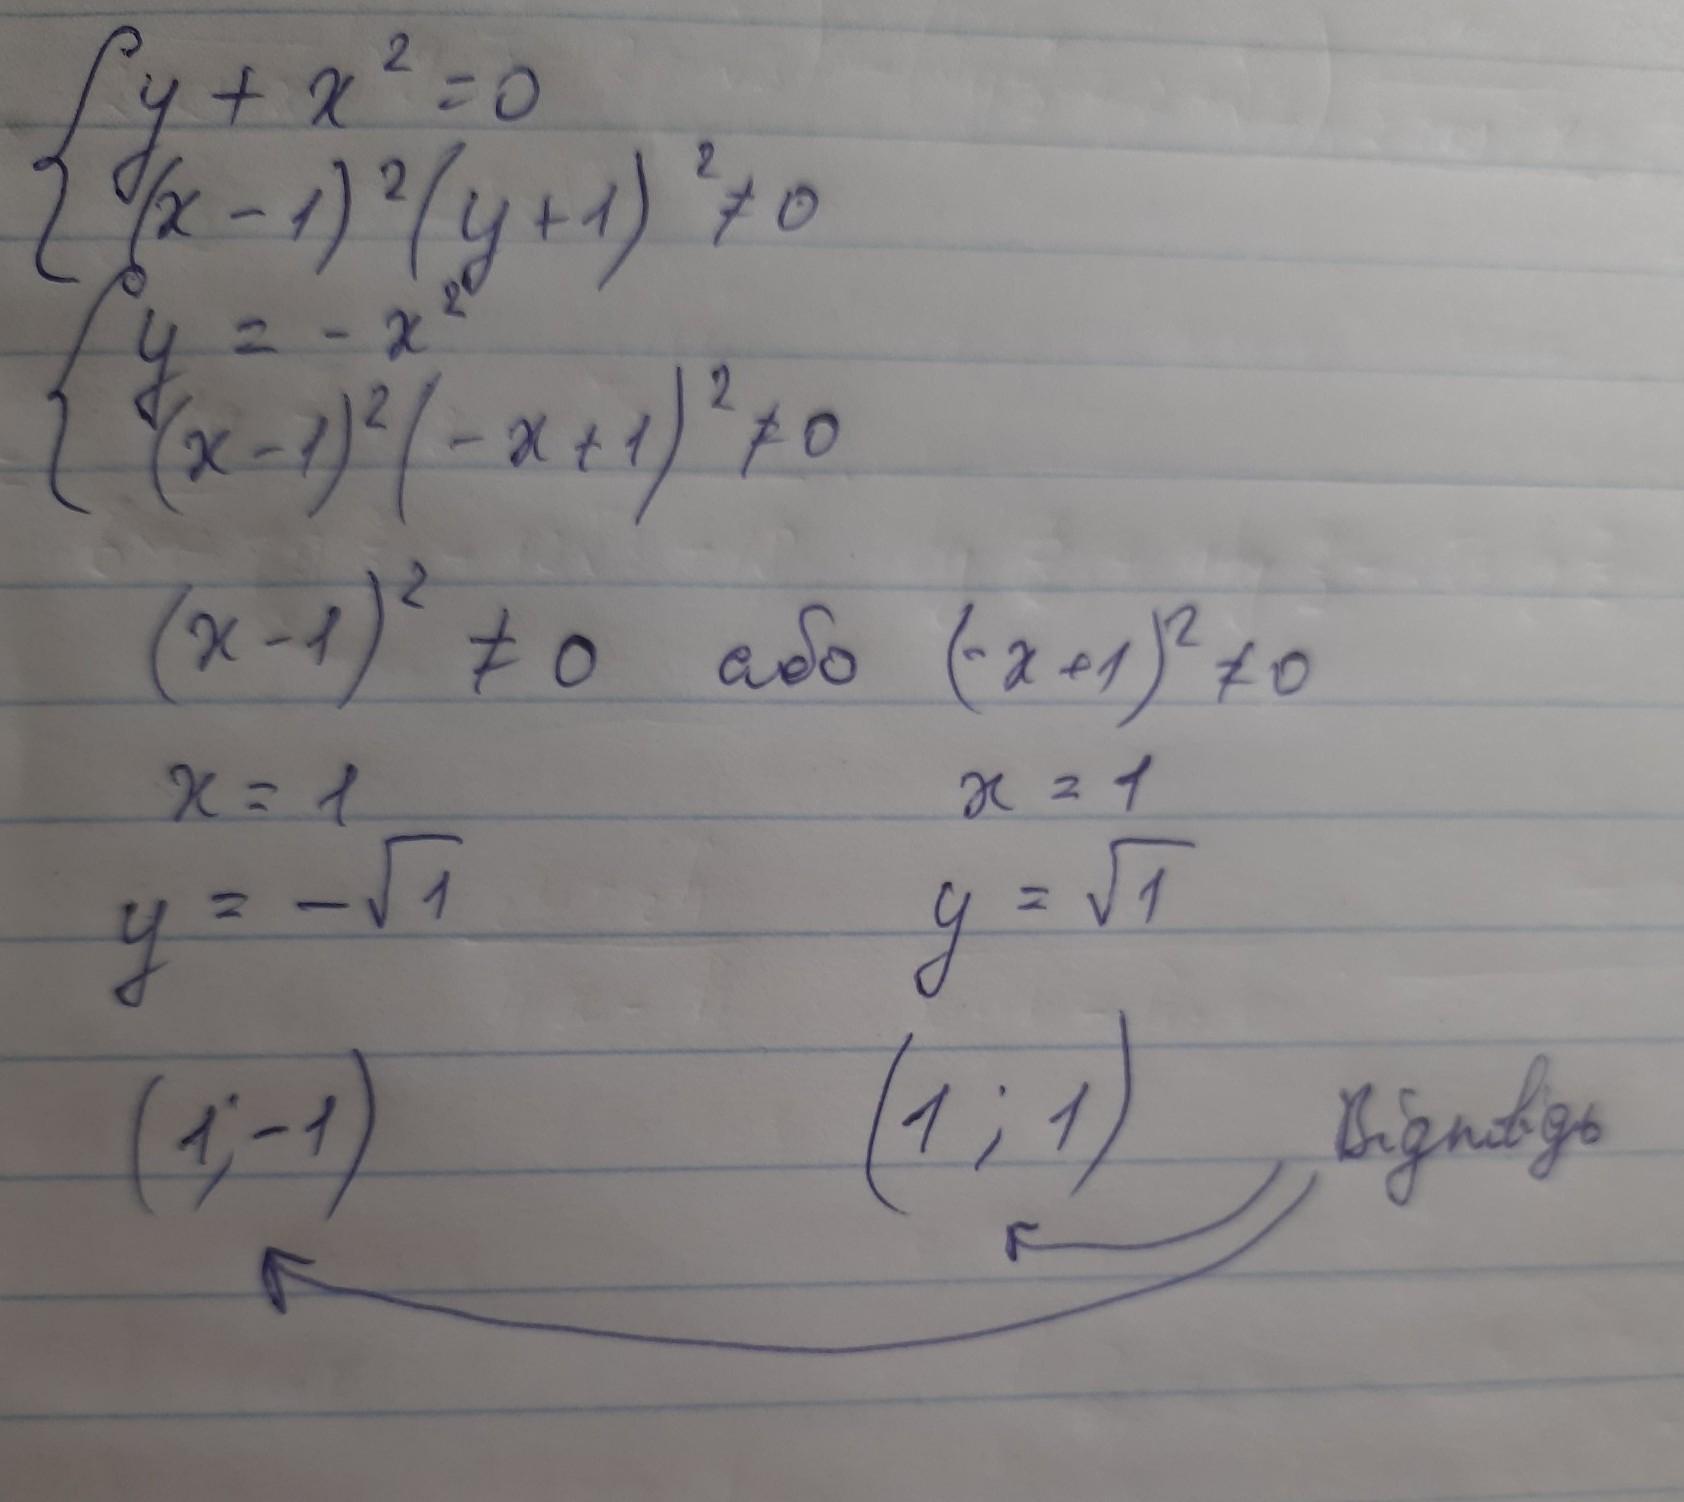 y + x² = 0
(x - 1)² (y + 1)² ≠ 0
y = - x²
(x - 1)² (- x + 1)² ≠ 0
(x - 1)² ≠ 0 або (- x + 1)² ≠ 0
x = 1 x = 1
y = -√1 y = √1
(1; -1) (1 ; 1) Відповідь